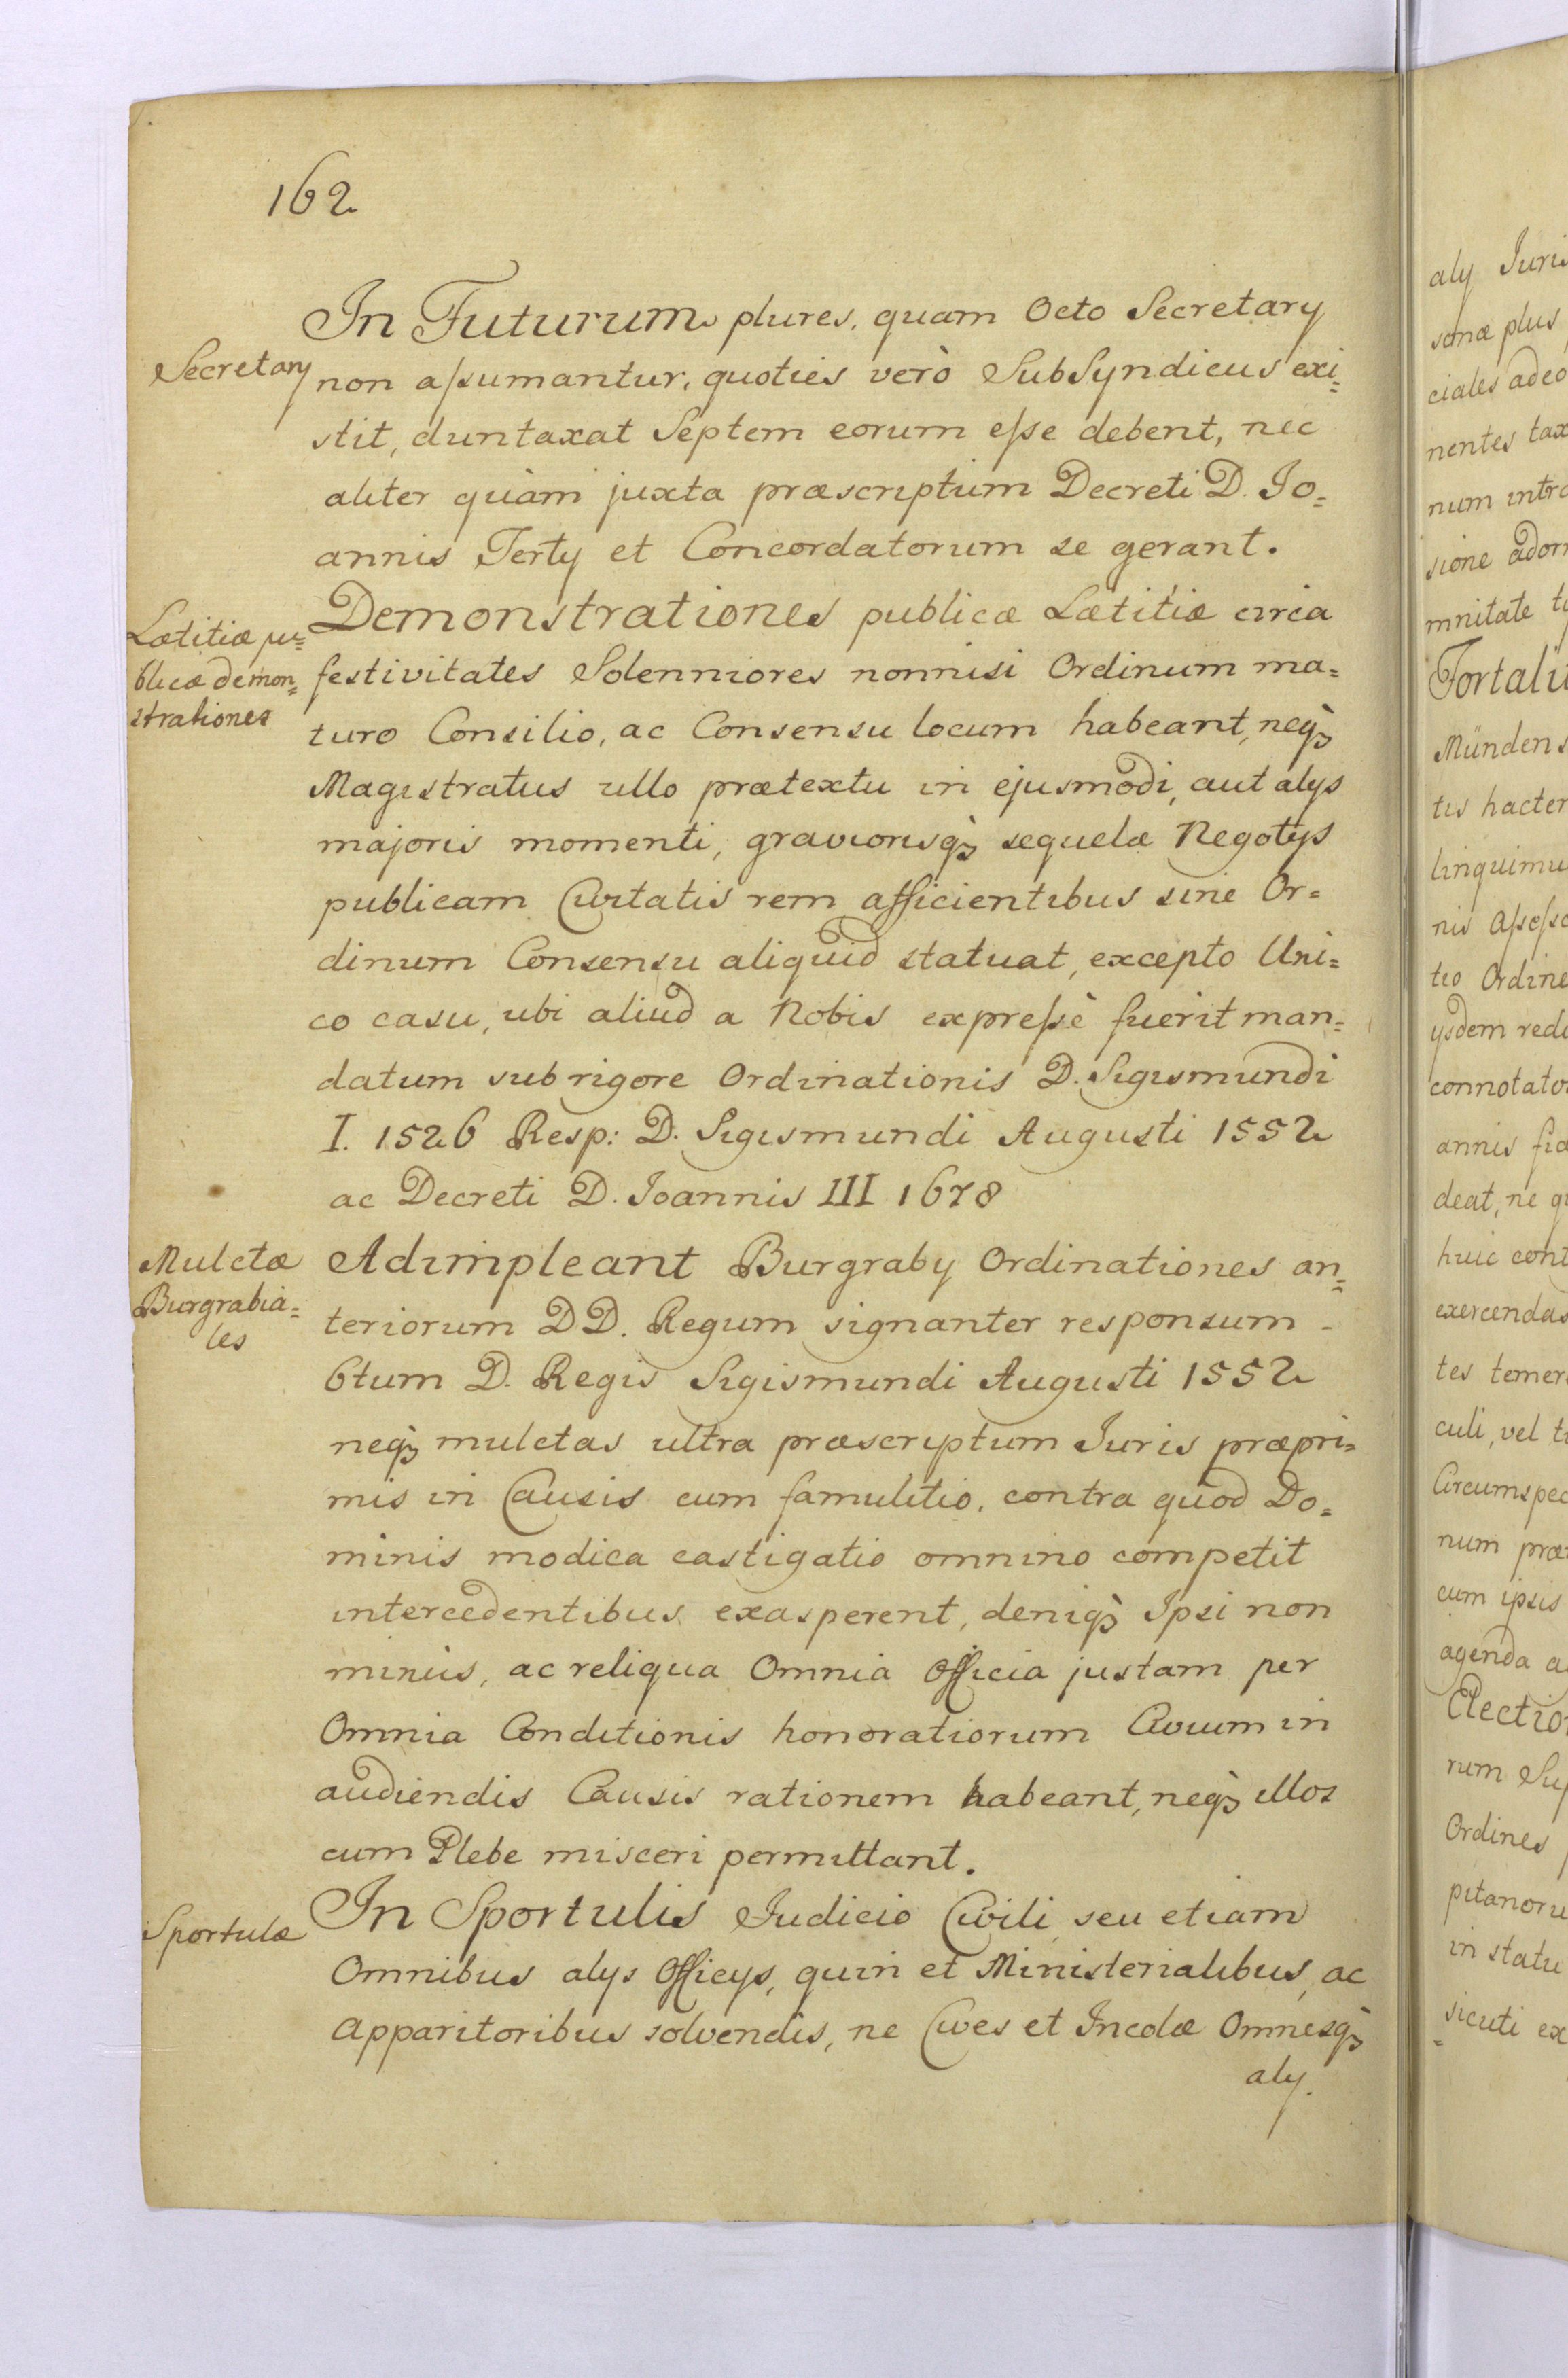 162
In Futurum plures, quam Octo Secretary
Secretary
non aſsumantur, quoties verò SubSyndicus exi=
stit, duntaxat Septem eorum eſse debent, nec
aliter quàm juxta præscriptum Decreti D. Jo=
annis Terty et Concordatorum se gerant.
Demonstrationes publicæ Lætitiæ circa
Lætitiæ pu=
blicæ demon=
strationes
festivitates Solenniores nonnisi Ordinum ma=
turo Consilio, ac Consensu locum habeant, neq̀3
Magistratus ullo prætextu in ejusmodi, aut alys
majoris momenti, graviorisq̀3 sequelæ Negotys
publicam Civitatis rem afficientibus sine Or=
dinum Consensu aliquid statuat, excepto Uni=
co casu, ubi aliud a Nobis expreſsè fuerit man=
datum sub rigore Ordinationis D. Sigismundi
I. 1526 Resp: D. Sigismundi Augusti 1552
ac Decreti D. Joannis III 1678
Mulctæ
Burgrabia=
les
Adimpleant Burgraby Ordinationes an=
teriorum DD. Regum signanter responsum
6tum D. Regis Sigismundi Augusti 1552
neq̀3 mulctas ultra præscriptum Juris præpri=
mis in Causis cum famulitio, contra quod Do=
minis modica castigatio omnino competit
intercedentibus exasperent, deniq̀3 Ipsi non
minùs, ac reliqua Omnia Officia justam per
Omnia Conditionis honoratiorum Civium in
audiendis Causis rationem habeant, neq̀3 illos
cum Plebe misceri permittant.
Sportulæ
In Sportulis Judicio Civili, seu etiam
Omnibus alys Officys, quin et Ministerialibus, ac
Apparitoribus solvendis, ne Cives et Incolæ Omnesq̀3
aly.
aly Juris
sonæ plus
ciales adeo
nentes tax
num intra
sione adorn
mnitate
Fortali
Mündens
tis hacten
linquimu
nis Aſseſso
tio Ordine
ysdem redi
connotato
annis
deat, ne
huic cont
exercendas
tes temer
culi, vel
Circumspec
num præ
cum ipsis
agenda a
Electio
rum Su
Ordines
pitanoru
in statu
sicuti ex